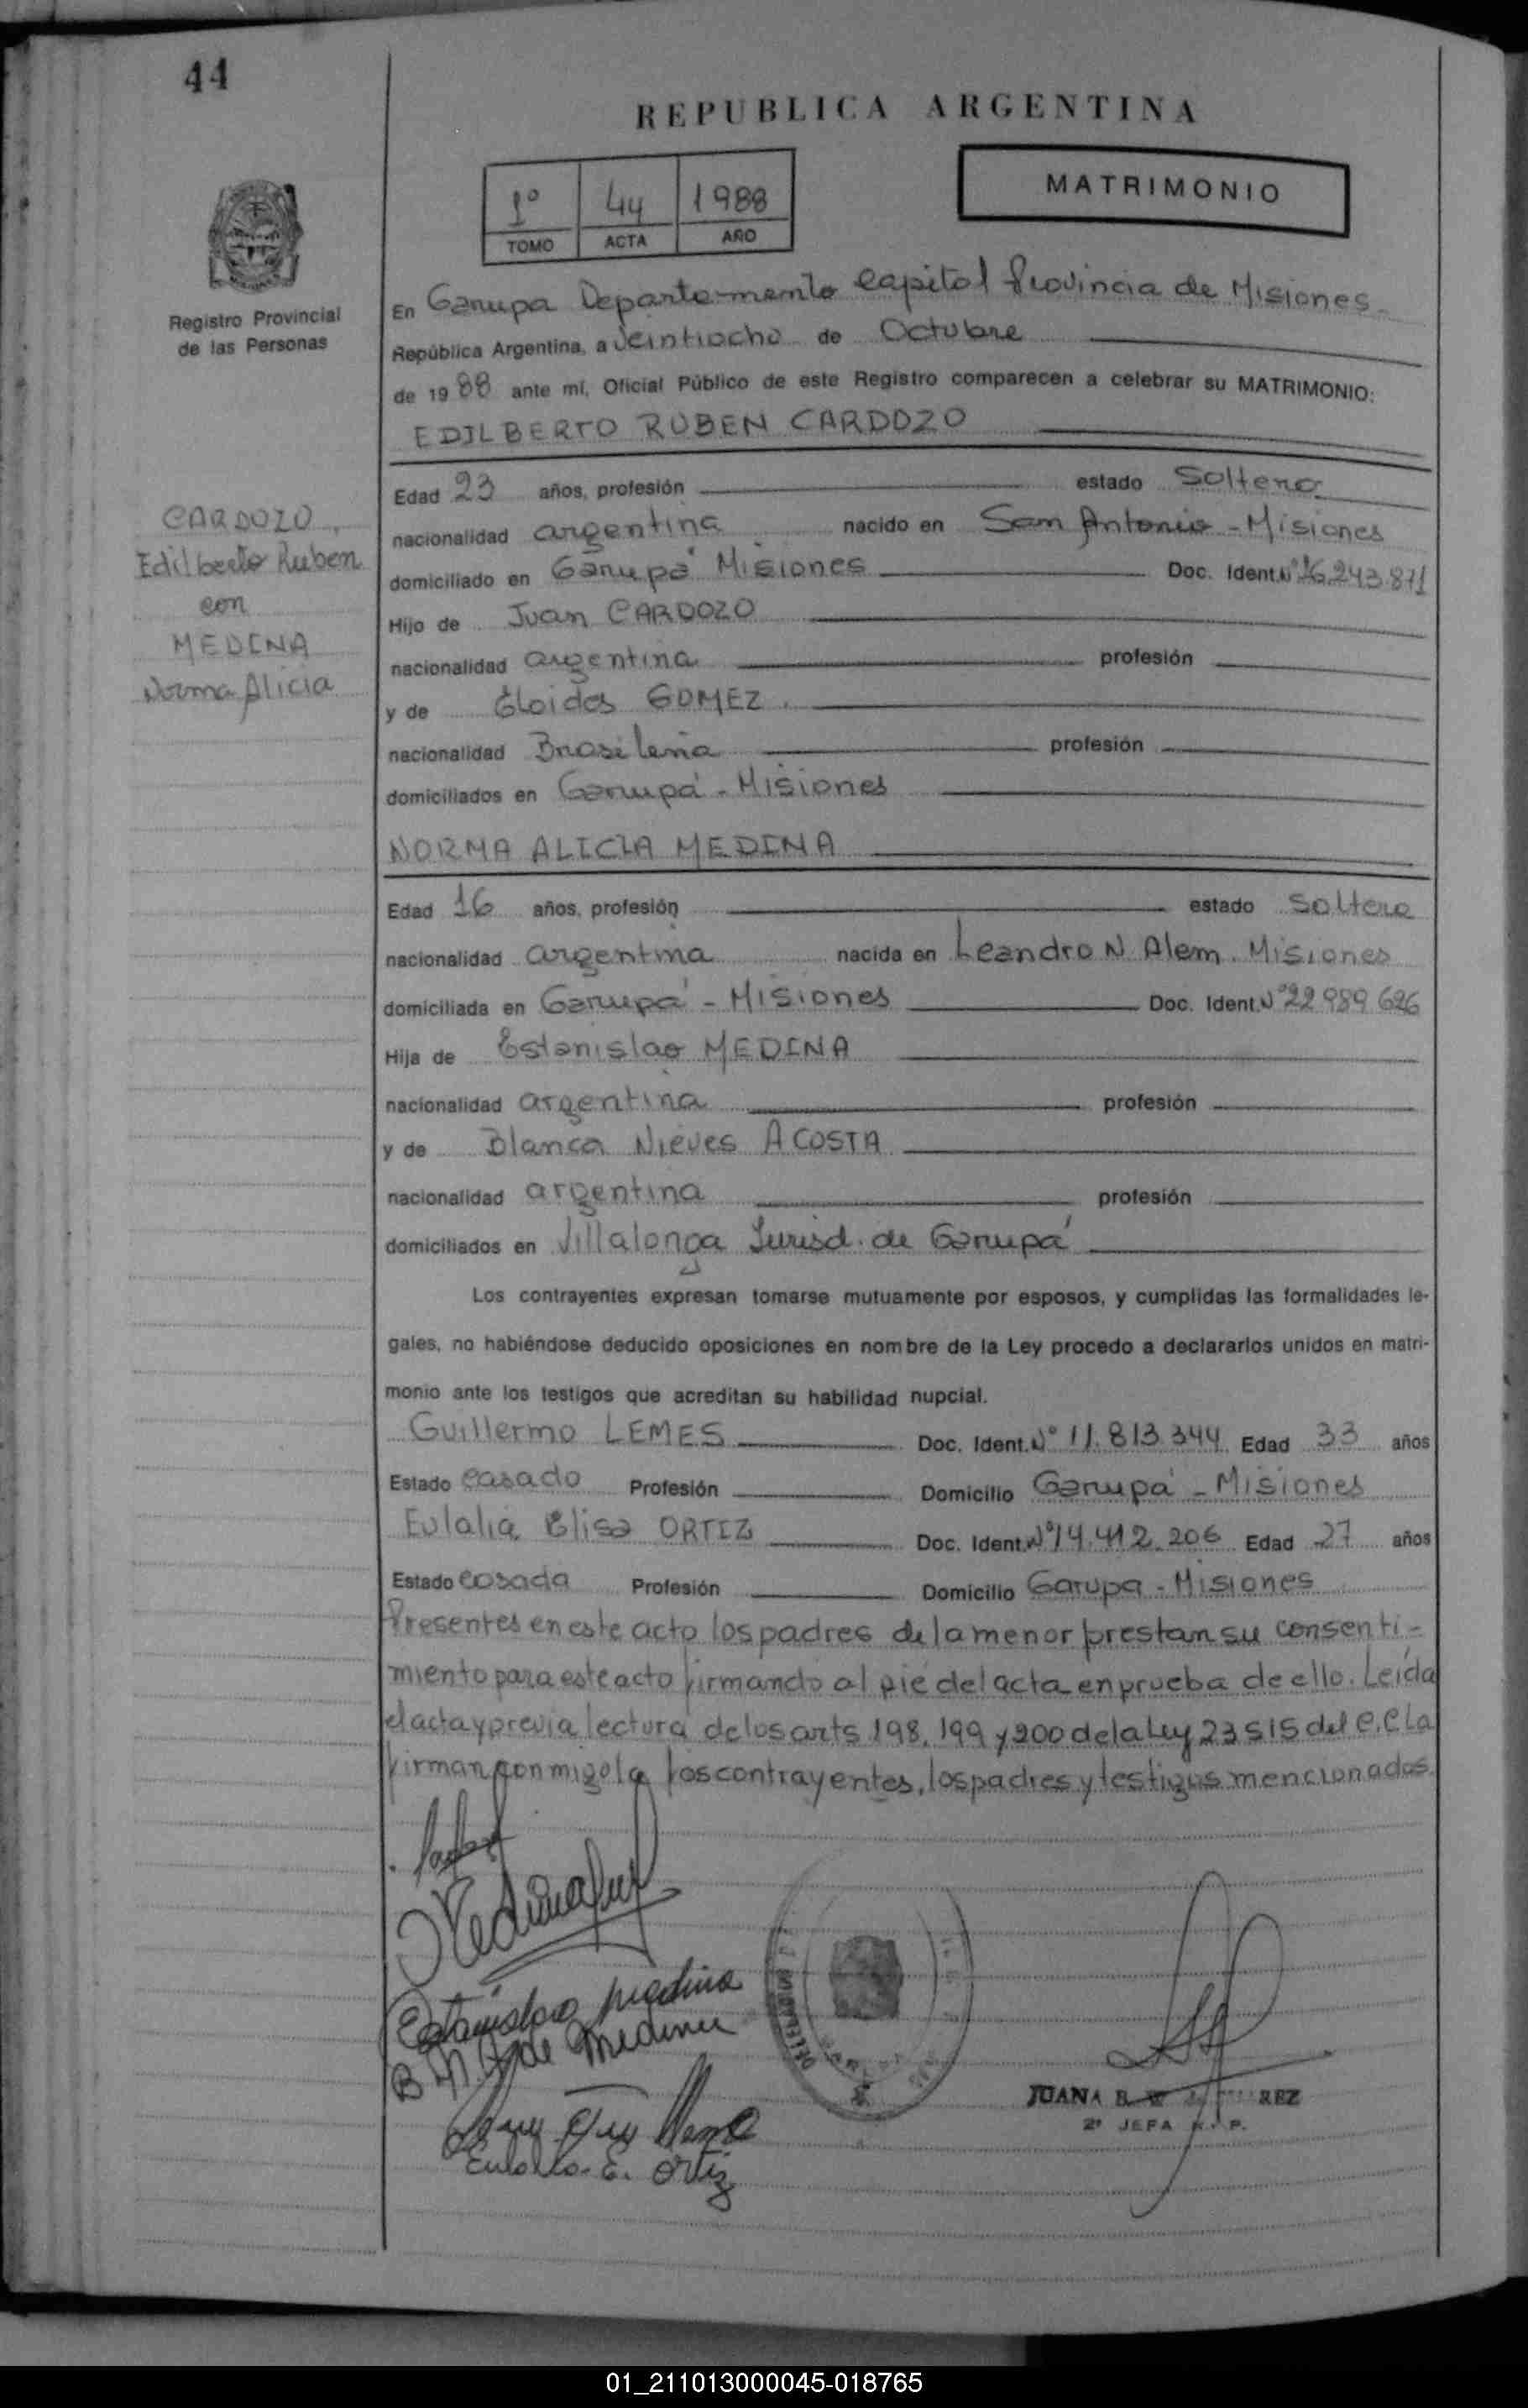 44
REPUBLICA ARGENTINA
1º 44 1988
TOMO ACTA AÑO
MATRIMONIO
Registro Provincial
de las Personas
En Garupa Departamento Capital Provincia de Misiones
República Argentina, a veintiocho de Octubre
de 1988 ante mí, Oficial Público de este Registro comparecen a celebrar su MATRIMONIO:
EDILBERTO RUBEN CARDOZO
CARDOZO
Edilberto Ruben
con
MEDINA
Norma Alicia
Edad 23 años, profesión estado Soltero
nacionalidad argentina nacido en San Antonio - Misiones
domiciliado en Garupá Misiones Doc. Ident. Nº 16.243.871
Hijo de Juan CARDOZO
nacionalidad argentina profesión
y de GOMEZ
nacionalidad Brasileña profesión
domiciliados en Garupá - Misiones
NORMA ALICIA MEDINA
Edad 16 años, profesión estado Soltera
nacionalidad argentina nacida en Leandro N. Alem. Misiones
domiciliada en Garupá - Misiones Doc. Ident. Nº 22 989 626
Hija de Estanislao MEDINA
nacionalidad argentina profesión
y de Blanca Nieves ACOSTA
nacionalidad argentina profesión
domiciliados en Villalonga Jurisd. de Garupá
Los contrayentes expresan tomarse mutuamente por esposos, y cumplidas las formalidades le-
gales, no habiéndose deducido oposiciones en nombre de la Ley procedo a declararlos unidos en matri-
monio ante los testigos que acreditan su habilidad nupcial.
Guillermo LEMES Doc. Ident. Nº 11.813.344 Edad 33 años
Estado casado Profesión Domicilio Garupá - Misiones
Eulalia Elisa ORTIZ Doc. Ident. Nº 14.412.206 Edad 27 años
Estado casada Profesión Domicilio Garupa - Misiones
Presentes en este acto los padres de la menor prestan su consenti-
miento para este acto firmando al pie del acta en prueba de ello. Leída
el acta y previa lectura de los arts 198, 199 y 200 de la Ley 23515 del C.C La
firman conmigo los contrayentes, los padres y testigos mencionados.
Estanislao Medina
B. N. A de Medina
Eulalia E. Ortiz
JUANA B. REZ
2º JEFA R. P.
01_211013000045-018765